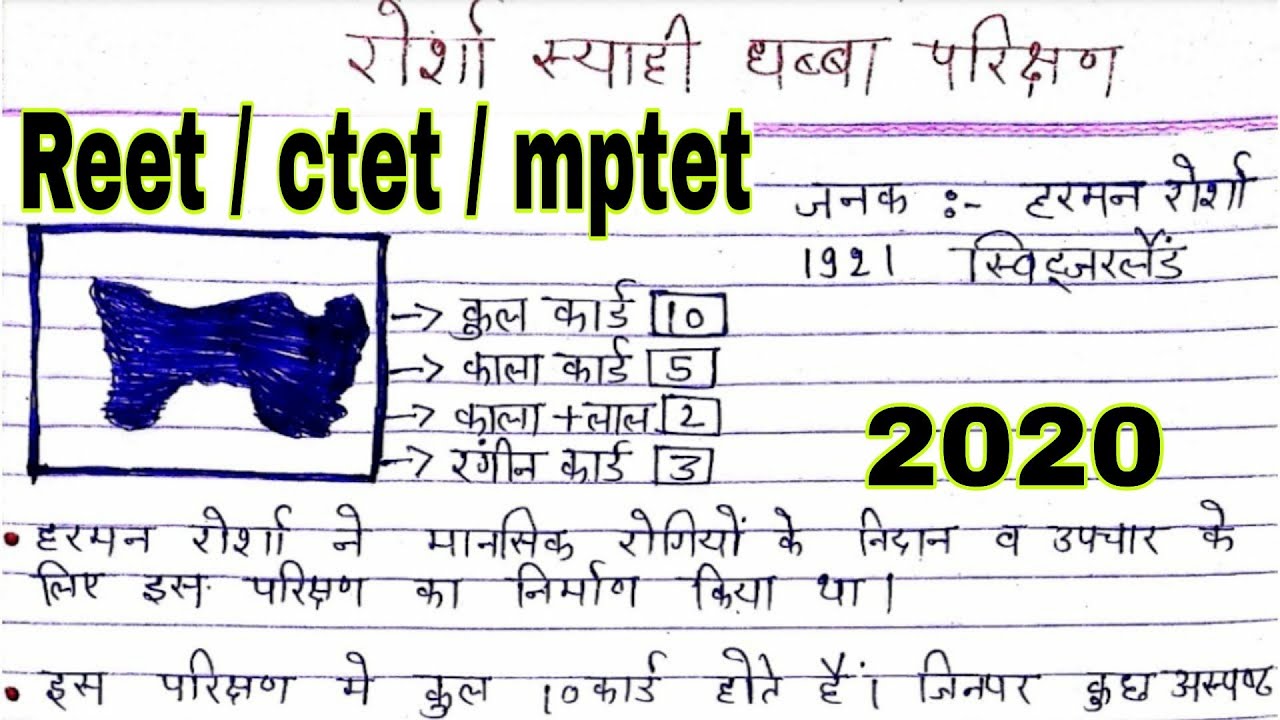 रोर्शा स्याही धब्बा परिक्षण
Reet / ctet / mptet
जनक :- हरमन रोर्शा
1921 स्विट्जरलैंड
→ कुल कार्ड 10
→ काला कार्ड 5
→ काला + लाल 2
→ रंगीन कार्ड 3
2020
• हरमन रोर्शा ने मानसिक रोगियों के निदान व उपचार के
लिए इस परिक्षण का निर्माण किया था।
• इस परिक्षण मे कुल 10 कार्ड होते हैं। जिनपर कुछ अस्पष्ट